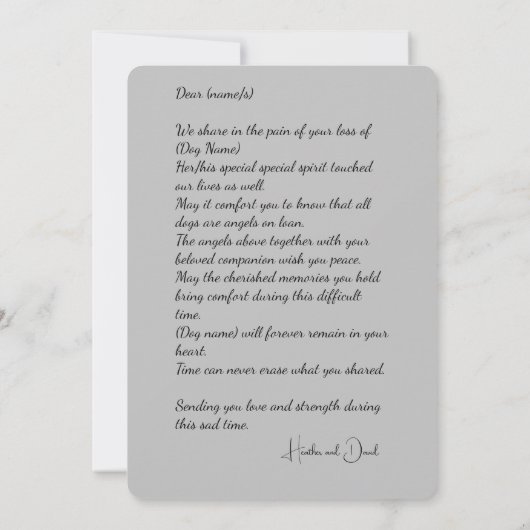 Dear (name/s)
We share in the pain of your loss of
(Dog Name)
Her/his special special spirit touched
our lives as well.
May it comfort you to know that all
dogs are angels on loan.
The angels above together with your
beloved companion wish you peace.
May the cherished memories you hold
bring comfort during this difficult
time.
(Dog name) will forever remain in your
heart.
Time can never erase what you shared.
Sending you love and strength during
this sad time.
Heather and David